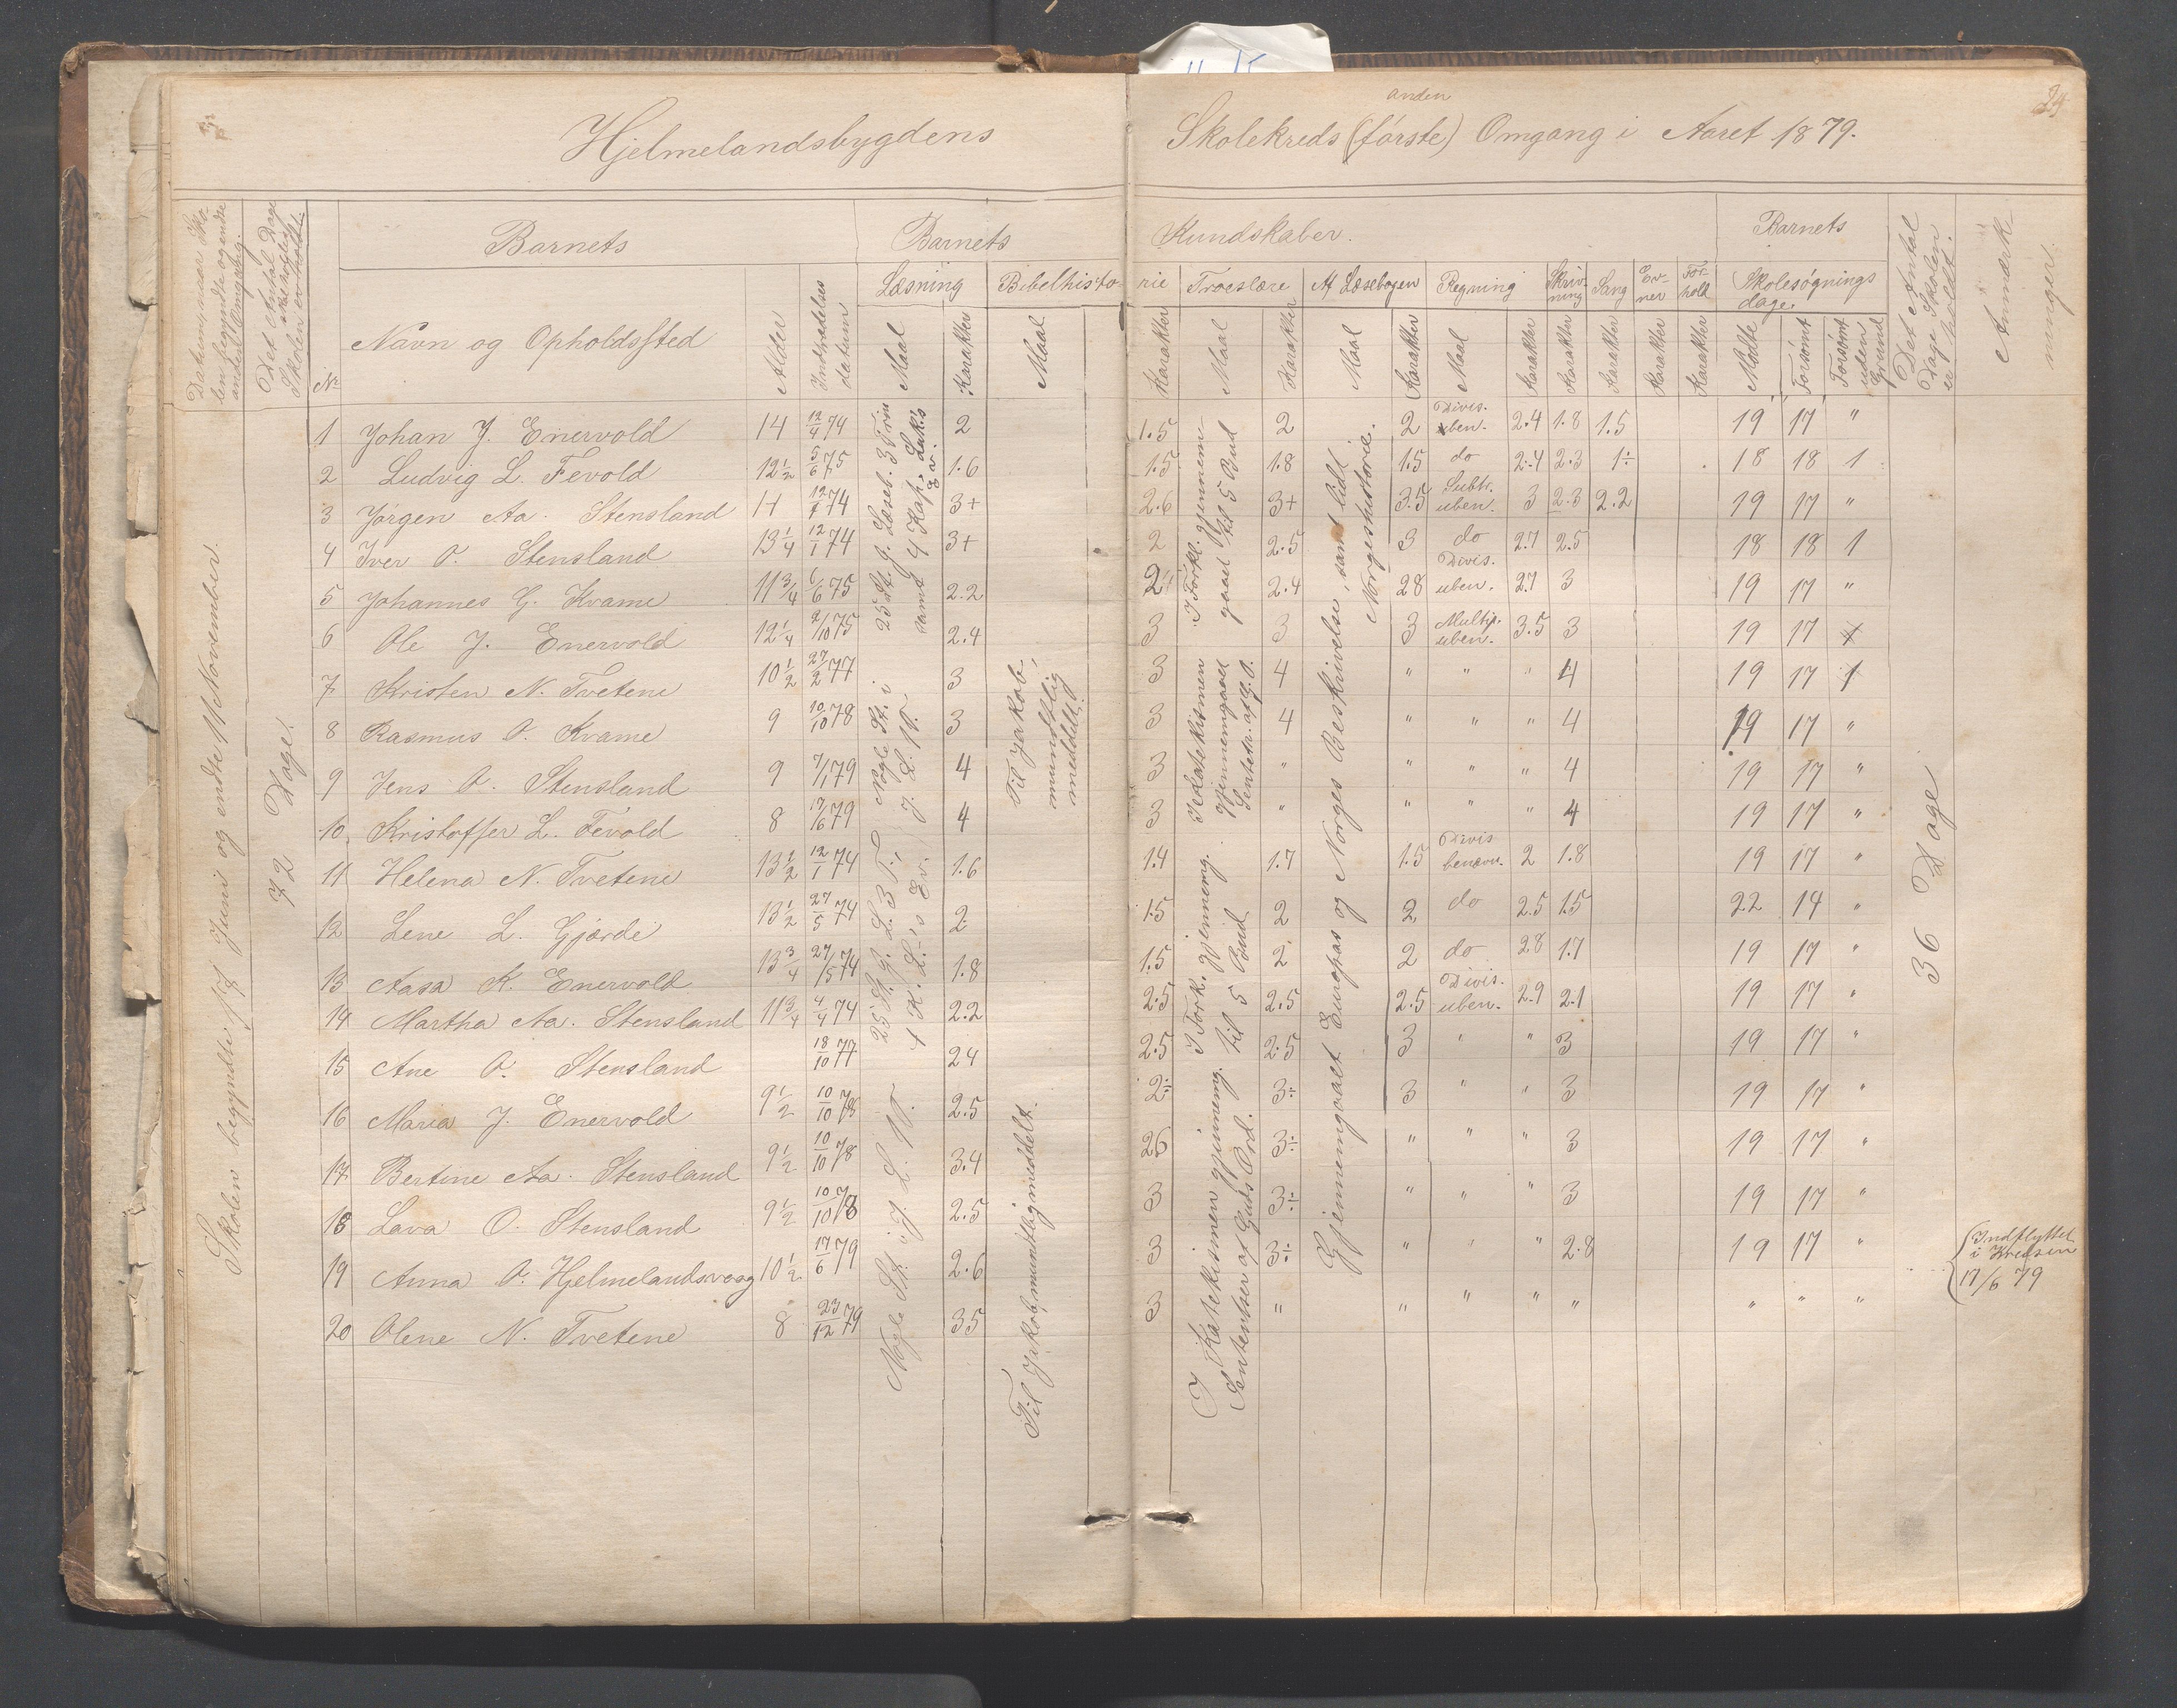 anden
Hjelmelandsbygdens Skolekreds (første) Omgang i Aaret 1879.
24
Datum, naar Skolen begyndte og endte anden Omgang.
Det Antal Dage Skolen skal holdes
No
Barnets
Navn og Opholdssted
Alder
Indtrædelses datum
Barnets Kundskaber.
Læsning
Maal
Karakter
Bibelhistorie
Maal
Karakter
Troeslære
Maal
Karakter
Af Læsebogen
Maal
Karakter
Regning
Maal
Karakter
Skrivning
Karakter
Sang
Karakter
Evner
Karakter
Forhold
Karakter
Barnets
Skolesøgnings dage.
Mødte
Forsømt
Forsømt uden Grund
Det Antal Dage Skolen er holdt.
Anmærkninger.
Skolen begyndte 17 Juni og endte 11 November.
72 Dage.
1 Johan J. Enervold 14 12/4 74 2 1.5 2 2 Divis. uben. 2.4 1.8 1.5 19 17 "
2 Ludvig L. Fevold 12 1/2 5/6 75 1.6 1.5 1.8 1.5 do 2.4 2.3 1÷ 18 18 1
3 Jørgen Aa. Stensland 14 12/1 74 3+ 2.6 3+ 3.5 Subtr. uben. 3 2.3 2.2 19 17 "
4 Iver O. Stensland 13 1/4 12/1 74 3+ 2 2.5 3 do 2.7 2.5 18 18 1
5 Johannes G. Kvame 11 3/4 6/6 75 2.2 2+ 2.4 28 Divis. uben. 2.7 3 19 17 "
6 Ole J. Enervold 12 1/4 2/10 75 2.4 3 3 3 Multip. uben. 3.5 3 19 17
7 Kristen N. Tvetene 10 1/2 27/2 77 3 3 4 " " " 4 19 17 1
8 Rasmus O. Kvame 9 10/10 78 3 3 4 " " " 4 19 17 "
9 Jens O. Stensland 9 7/1 79 4 3 " " " " 4 19 17 "
10 Kristoffer L. Fevold 8 17/6 79 4 3 " " " " 4 19 17 "
11 Helena N. Tvetene 13 1/2 12/1 74 1.6 1.4 1.7 1.5 Divis benævn. 2 1.8 19 17 "
12 Lene L. Gjærde 13 1/2 27/5 74 2 1.5 2 2 do 2.5 1.5 22 14 "
13 Aasa K. Enervold 13 3/4 27/5 74 1.8 1.5 2 2 do 28 1.7 19 17 "
14 Martha Aa. Stensland 11 3/4 4/4 74 2.2 2.5 2.5 2.5 Divis. uben. 2.9 2.1 19 17 "
15 Ane O. Stensland 18/10 77 24 2.5 2.5 3 " " 3 19 17 "
16 Maria J. Enervold 9 1/2 10/10 78 2.5 2÷ 3÷ 3 " " 3 19 17 "
17 Bertine Aa. Stensland 9 1/2 10/10 78 3.4 26 3÷ " " " 3 19 17 "
18 Lava O. Stensland 9 1/2 10/10 78 2.5 3 3÷ " " " 3 19 17 "
19 Anna O. Hjelmelandsvaag 10 1/2 17/6 79 2.6 3 3÷ " " " 2.8 19 17 "
20 Olene N. Tvetene 8 23/12 79 35 3 " " " " " " " "
25 St. g. Læseb. 3 Trin
samt 4 Kap. Luk's Ev.
Nogle St. i
J. L. W.
25 St. g. L. 3 T.,
4 K. L.'s Ev.
Nogle St. i J. L. W.
Til Jakob,
mundtlig
meddelt.
Til Jakob, mundtlig meddelt.
I Forkl. gjennem-
gaaet til 5 Bud
I Katekismen
gjennemgaaet
Sentetn. af G. O.
I Fork. gjennemg.
til 5 Bud
I Katekismen gjennemg.
Sentenser af Guds Ord.
Gjennemgaaet Europas og Norges Beskrivelse, samt lidt
Norgeshistorie.
36 Dage
Indflyttet
i Kredsen
17/6 79